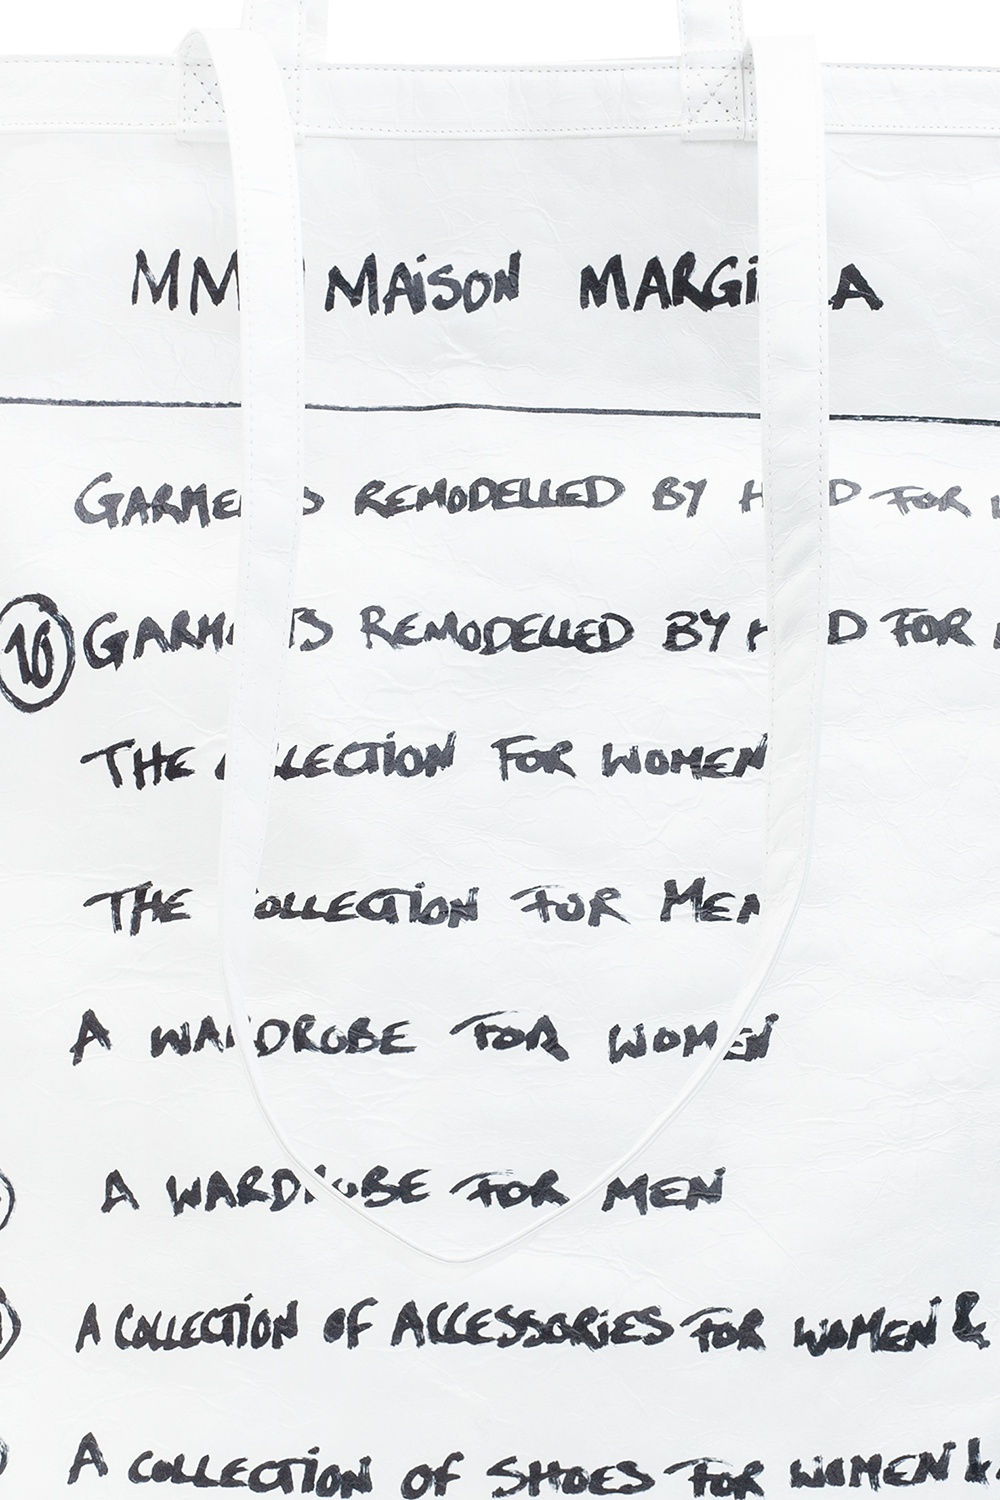 MM MAiSON MARGi A
GARME S REMODELLED BY H D FOR
10 GARM TS REMODELLED BY H D FOR
THE LLECTiON FOR WOMEN
THE OLLECTiON FOR MEN
A WARDROBE FOR WOMEN
A WARDROBE FOR MEN
A COLLECTiON OF ACCESSORiES FOR WOMEN &
A COLLECTiON OF SHOES FOR WOMEN &